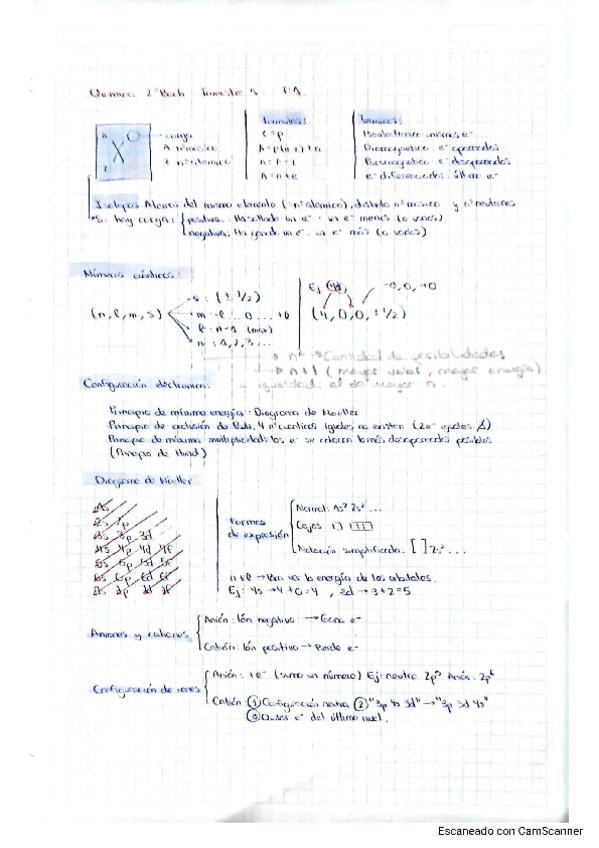 Química 2º Bach Trimestre 1 T.1
A X Z
carga
A másico
Z nº atómico
Formulas:
e = p
A = p(o z) + n
n = A - Z
A = n + e
Términos:
Isoelectronico: mismos e⁻
Diamagnetico: e⁻ apareados
Paramagnetico: e⁻ desapareados
e⁻ diferenciador: último e⁻
Isotopos: Atomos del mismo elemento (= nº atomico), distinto nº masico y nº neutrones
*Si hay carga: positiva: Ha soltado un e⁻, un e⁻ menos (o varios)
negativa: Ha ganado un e⁻, un e⁻ más (o varios)
Números cuánticos:
(n, l, m, s)
s: (± 1/2)
m: -l ... 0 ... +l
l: n-1 (max)
n: 1, 2, 3...
Ej: 4s, -0, 0, +0
(4, 0, 0, ± 1/2)
n² → Cantidad de posibilidades
n + l (mayor valor, mayor energía)
igualdad: el de mayor n.
Configuración electronica:
Principio de mínima energía: Diagrama de Moeller
Principio de exclusión de Pauli: 4 nº cuánticos iguales no existen (2e⁻ iguales
Principio de máxima multiplicidad: los e⁻ se colocan lo más desapareados posibles
(Principio de Hund)
Diagrama de Moeller
1s
2s 2p
3s 3p 3d
4s 4p 4d 4f
5s 5p 5d 5f
6s 6p 6d 6f
7s 7p 7d 7f
Formas de expresión
Normal: 1s² 2s² ...
Cajas:
Notación simplificada: [ ] 2s² ...
n+l → Para ver la energía de los orbitales.
Ej: 4s → 4+0=4, 3d → 3+2=5
Aniones y cationes
Anión: Ión negativo → Gana e⁻
Catión: Ión positivo → Pierde e⁻
Configuración de iones
Anión: +e⁻ (sumo un número) Ej: neutro 2p⁵ Anión: 2p⁶
Catión: ① Configuración neutra ② "3p 4s 3d" → "3p 3d 4s"
③ Quitas e⁻ del último nivel.
Escaneado con CamScanner